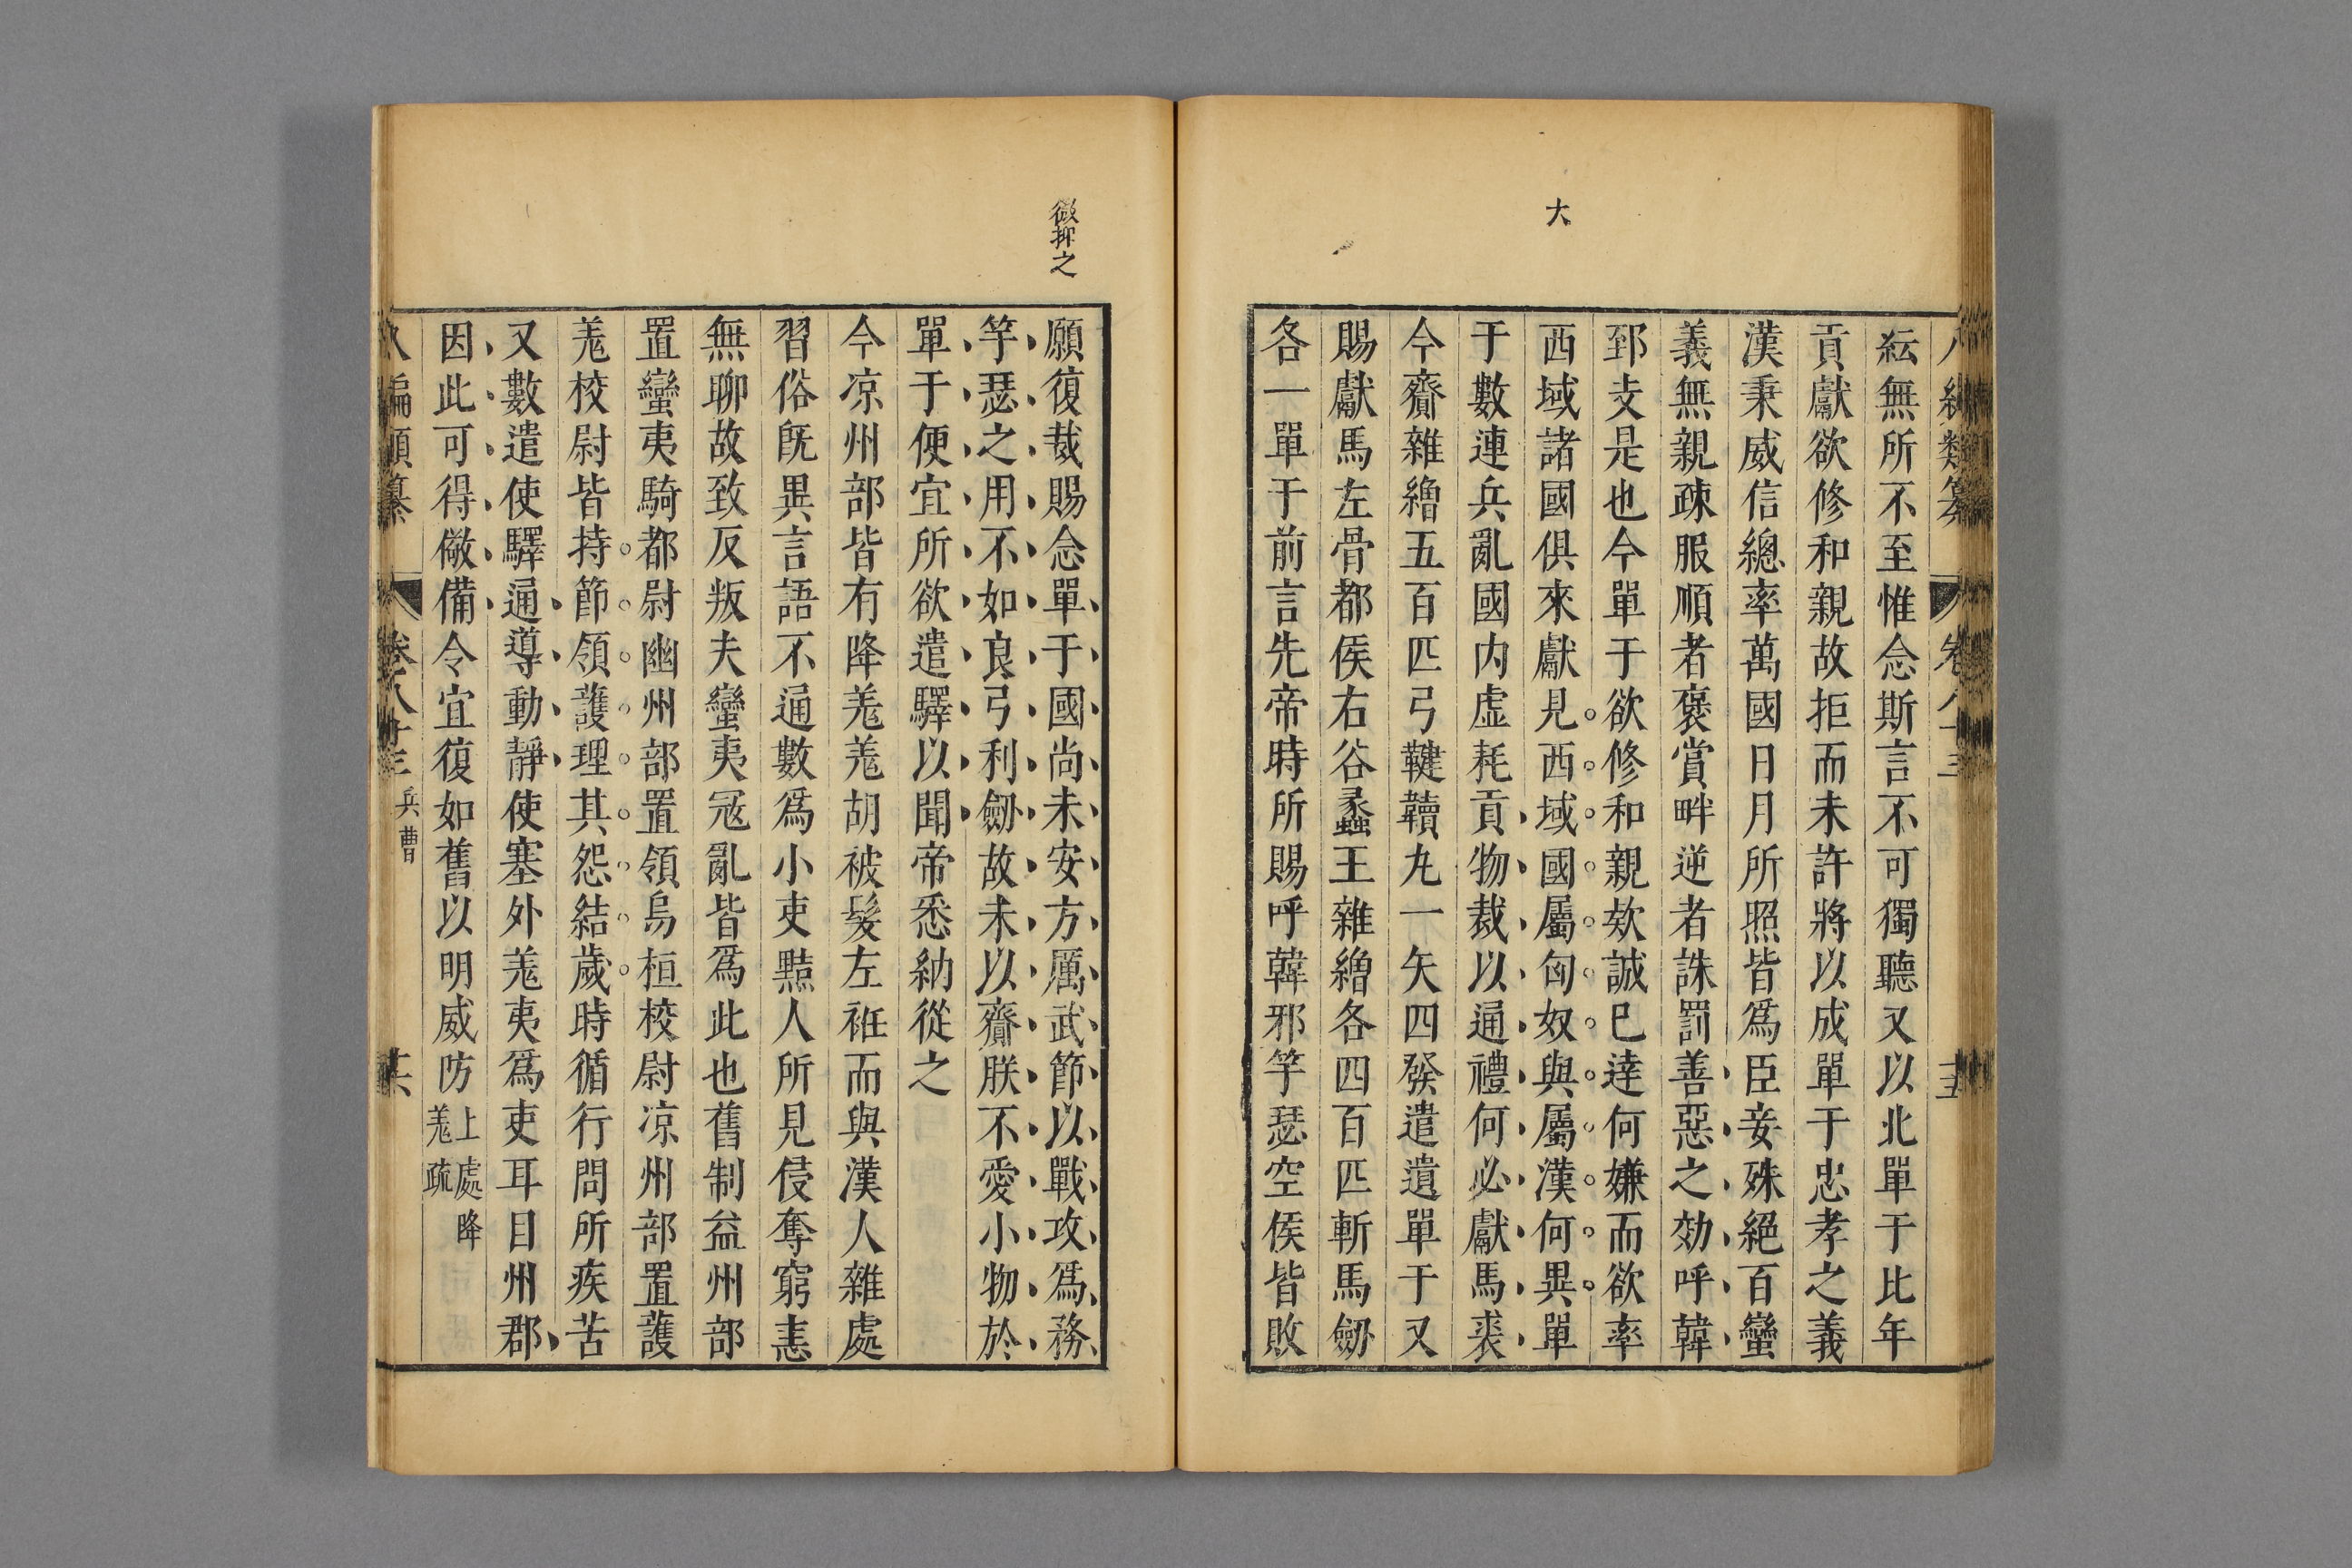 大
紜無所不至惟念斯言不可獨聽又以北單于比年
貢獻欲修和親故拒而未許將以成單于忠孝之義
漢秉威信總率萬國日月所照皆爲臣妾殊絕百蠻
義無親疎服順者褒賞畔逆者誅罰善惡之効呼韓
郅支是也今單于欲修和親欵誠已達何嫌而欲率
西域諸國俱來獻見西域國屬匈奴與屬漢何異單
于數連兵亂國内虛耗貢物裁以通禮何必獻馬裘
今齎雜繒五百匹弓鞬韥丸一矢四發遣遺單于又
賜獻馬左骨都侯右谷蠡王雜繒各四百匹斬馬劒
各一單于前言先帝時所賜呼韓邪竽瑟空侯皆敗
微抑之
願復裁賜念單于國尚未安方厲武節以戰攻爲務
竽瑟之用不如良弓利劒故未以齎朕不愛小物於
單于便宜所欲遣驛以聞帝悉納從之
今凉州部皆有降羗羗胡被髮左袵而與漢人雜處
習俗旣異言語不通數爲小吏黠人所見侵奪窮恚
無聊故致反叛夫蠻夷冦亂皆爲此也舊制益州部
置蠻夷騎都尉幽州部置領烏桓校尉凉州部置護
羗校尉皆持節領護理其怨結歲時循行問所疾苦
又數遣使驛通導動靜使塞外羗夷爲吏耳目州郡
因此可得儆備令宜復如舊以明威防上處降羗疏
八編類纂 卷八十三 兵曹 十六